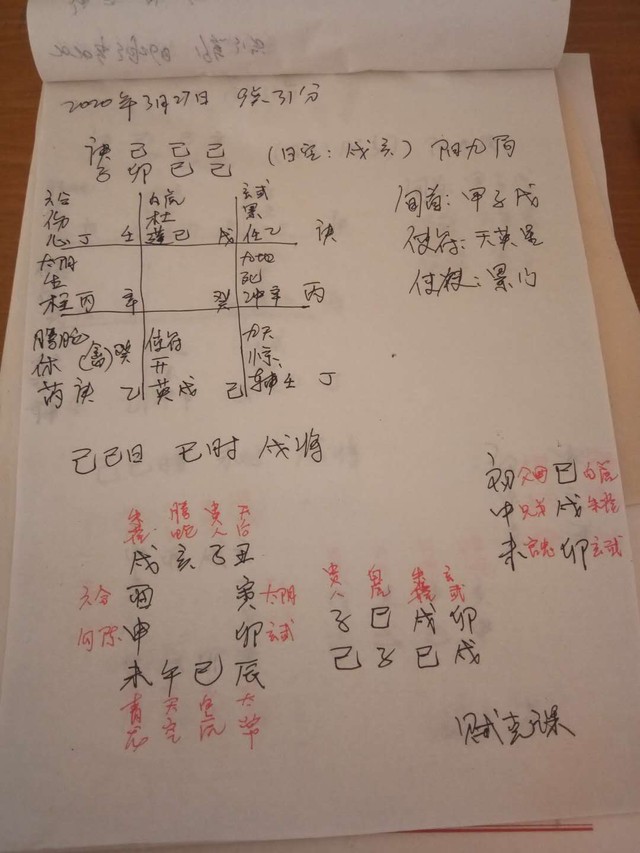 2020年3月27日 9点31分
庚 己 己 己 (日空:戌亥) 阳九局
子 卯 巳 巳
旬首:甲子戊
值符:天英星
六合 白虎 玄武
伤 杜 景
心丁 壬 蓬己 戊 任乙 庚
太阴 九地
生 死
柱丙 辛 癸 冲辛 丙
腾蛇 值符 九天
休 (禽)癸 开 惊
芮庚 乙 英戊 己 辅壬 丁
己巳日 巳时 戌将
初 父母 巳 白虎
中 兄弟 戌 朱雀
末 官鬼 卯 玄武
朱雀 腾蛇 贵人 天后
戌 亥 子 丑
六合 酉 寅 太阴
勾陈 申 卯 玄武
未 午 巳 辰
青龙 天空 白虎 太常
贵人 白虎 朱雀 玄武
子 巳 戌 卯
己 子 巳 戌